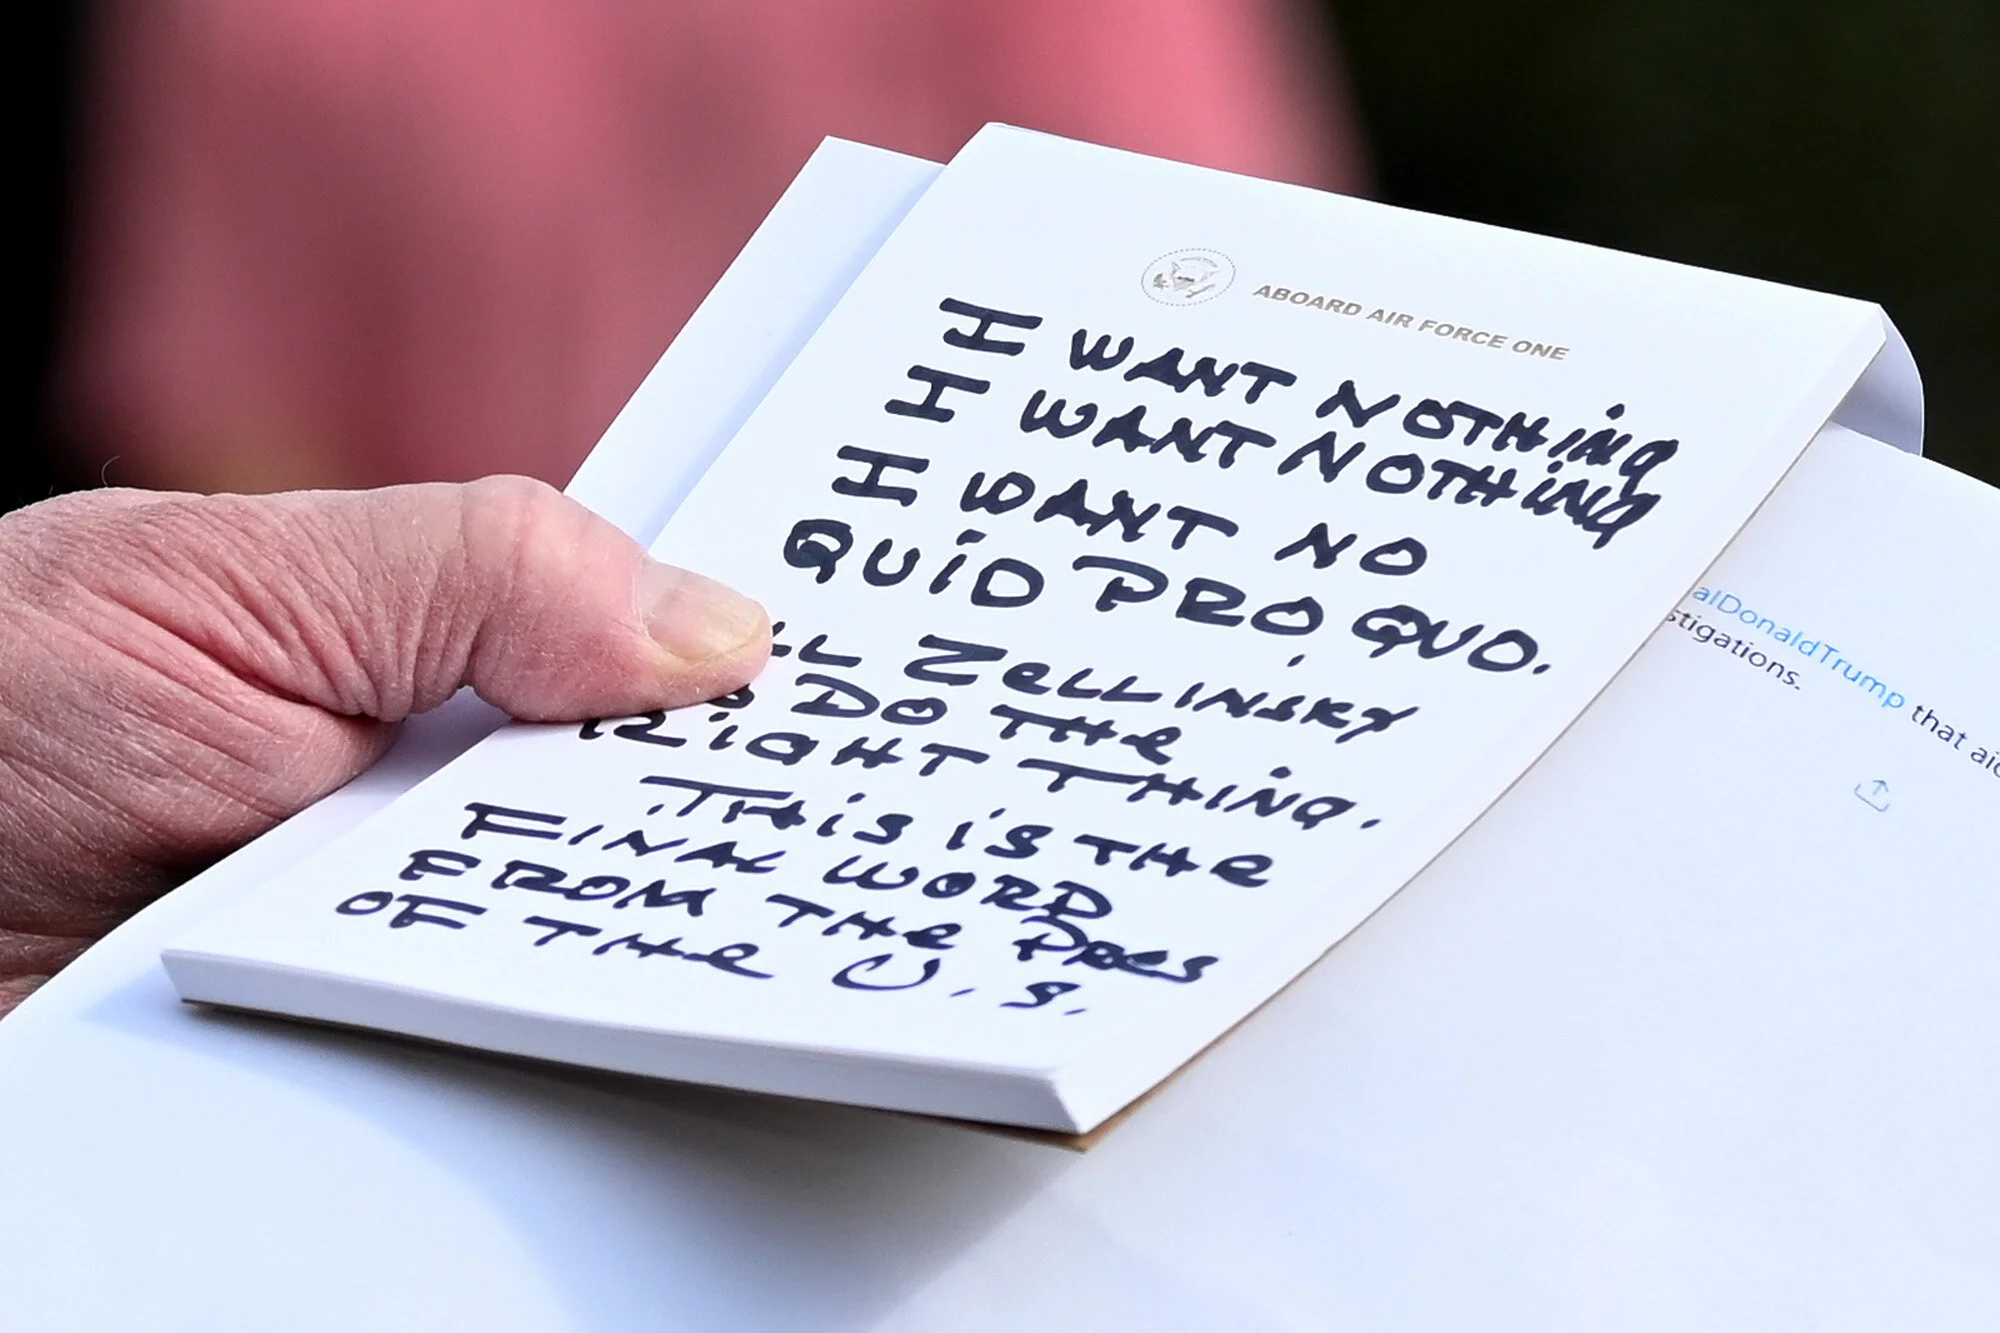 ABOARD AIR FORCE ONE
I WANT NOTHING
I WANT NOTHING
I WANT NO
QUID PRO QUO.
ZELLINSKY
DO THE
RIGHT THING.
THIS IS THE
FINAL WORD
FROM THE PRES
OF THE U.S.
alDonaldTrump that aid
stigations.